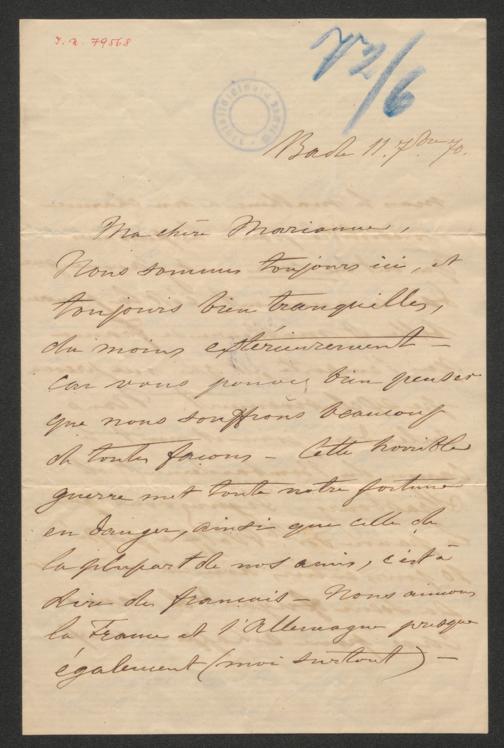 I.N. 79568
Bade 11. 7bre 70.
Ma chère Marianne,
Nous sommes toujours ici, et
toujours bien tranquilles,
du moins extérieurement –
car vous pouvez bien penser
que nous souffrons beaucoup
de toutes façons – Cette horrible
guerre met toute notre fortune
en danger, ainsi que celle de
la plupart de nos amis, c'est à
dire des français – Nous aimons
la France et l'Allemagne presque
également (moi surtout) –